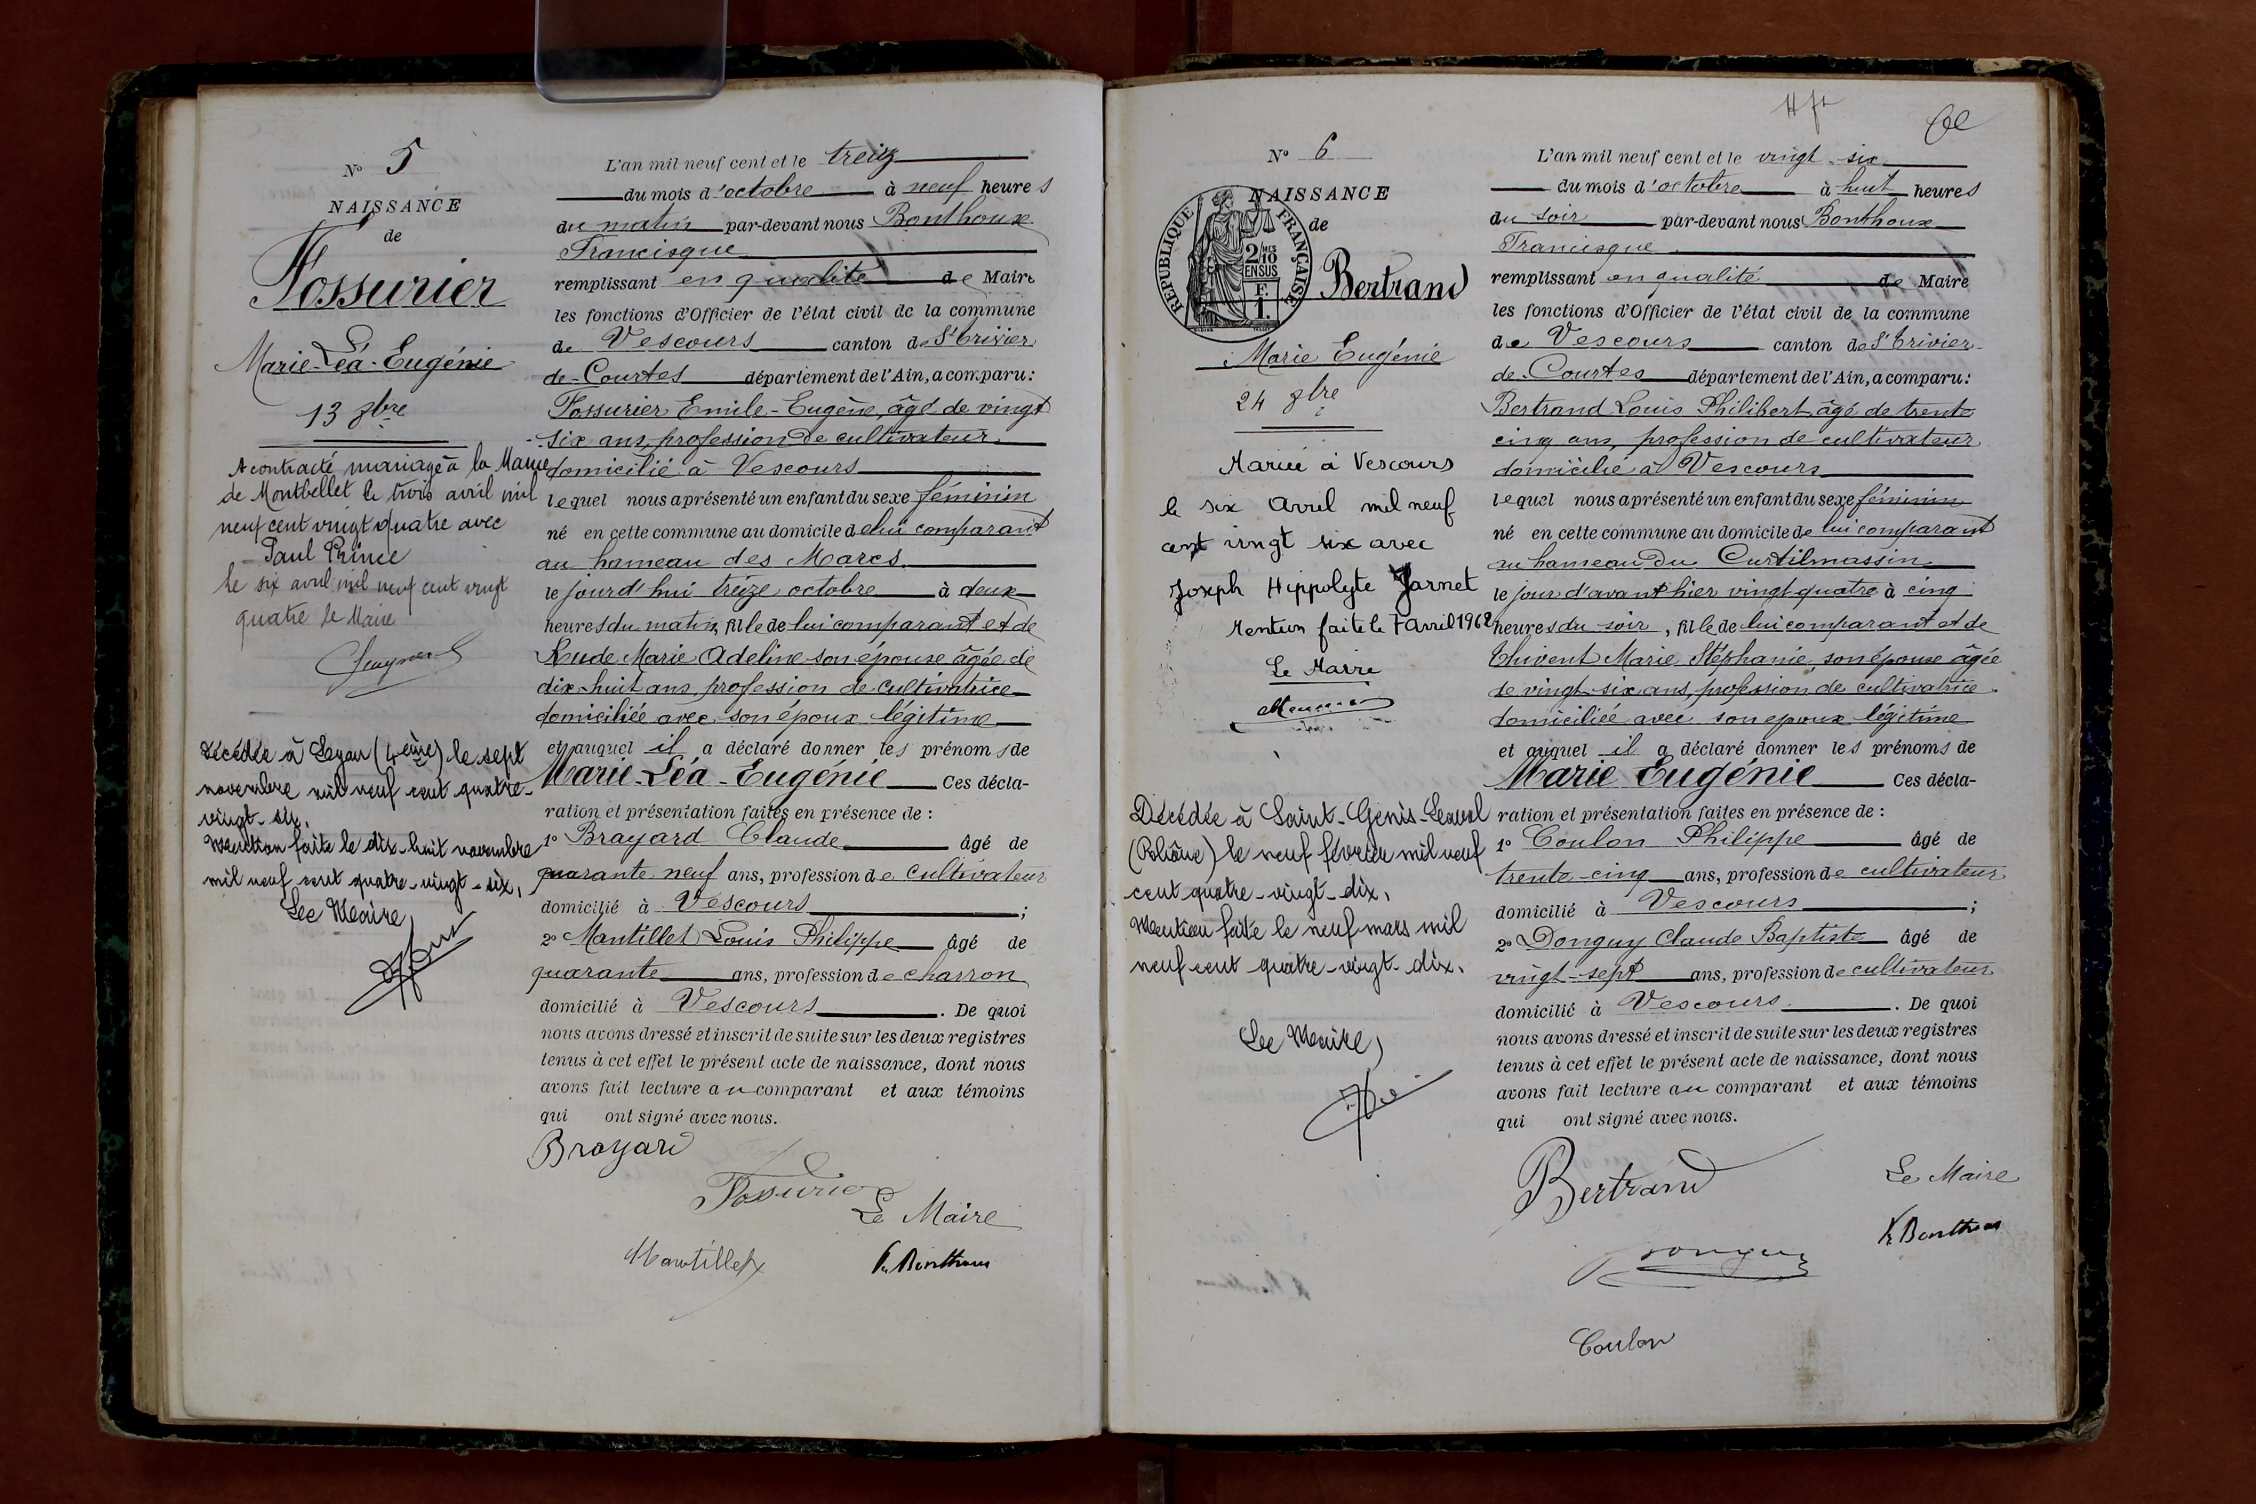 N° 5
NAISSANCE
de
Fossurier
Marie-Léa-Eugénie
13 8bre
A contracté mariage à la Mairie
de Montbellet le trois avril mil
neuf cent vingt quatre avec
Paul Prince
le six avril mil neuf cent vingt
quatre le Maire
Décédée à (4ème) le sept
novembre mil neuf cent quatre-
vingt-six.
Mention faite le dix-huit novembre
mil neuf cent quatre-vingt-six.
Le Maire,
L'an mil neuf cent et le treiz
du mois d'octobre à neuf heures
du matin par-devant nous Bonthoux
Francisque
remplissant en qualité de Maire
les fonctions d'Officier de l'état civil de la commune
de Vescours canton de St Trivier
de-Courtes département de l'Ain, a comparu:
Fossurier Emile-Eugène, âgé de vingt
six ans, profession de cultivateur
domicilié à Vescours
lequel nous a présenté un enfant du sexe féminin
né en cette commune au domicile de lui comparant
au hameau des Marcs
le jourd'hui treize octobre à deux
heures du matin, fille de lui comparant et de
Rude Marie Adeline son épouse âgée de
dix-huit ans, profession de cultivatrice
domiciliée avec son époux légitime
et auquel il a déclaré donner les prénoms de
Marie-Léa-Eugénie Ces décla-
ration et présentation faites en présence de :
1° Brayard Claude âgé de
quarante neuf ans, profession de cultivateur
domicilié à Vescours ;
2° Mantillet Louis Philippe âgé de
quarante ans, profession de charron
domicilié à Vescours . De quoi
nous avons dressé et inscrit de suite sur les deux registres
tenus à cet effet le présent acte de naissance, dont nous
avons fait lecture au comparant et aux témoins
qui ont signé avec nous.
Brayard
Fossurier
Le Maire
Mantillet
Fr Bonthoux
N° 6
NAISSANCE
de
RÉPUBLIQUE FRANÇAISE
2/10 MES
EN SUS
F.
1.
Bertrand
Marie Eugénie
24 8bre
Mariée à Vescours
le six Avril mil neuf
cent vingt six avec
Joseph Hippolyte Jarnet
Mention faite le 7 avril 1962
Le Maire
Décédée à Saint-Genis-Laval
(Rhône) le neuf février mil neuf
cent quatre-vingt-dix.
Mention faite le neuf mars mil
neuf cent quatre-vingt-dix.
Le Maire,
L'an mil neuf cent et le vingt-six
du mois d'octobre à huit heures
du soir par-devant nous Bonthoux
Francisque
remplissant en qualité de Maire
les fonctions d'Officier de l'état civil de la commune
de Vescours canton de St Trivier-
de-Courtes département de l'Ain, a comparu:
Bertrand Louis Philibert âgé de trente
cinq ans, profession de cultivateur
domicilié à Vescours
lequel nous a présenté un enfant du sexe féminin
né en cette commune au domicile de lui comparant
au hameau du Curtilmassin
le jour d'avant hier vingt quatre à cinq
heures du soir, fille de lui comparant et de
Thivent Marie Stéphanie, son épouse âgée
de vingt-six ans, profession de cultivatrice
domiciliée avec son époux légitime
et auquel il a déclaré donner les prénoms de
Marie Eugénie Ces décla-
ration et présentation faites en présence de :
1° Coulon Philippe âgé de
trente-cinq ans, profession de cultivateur
domicilié à Vescours ;
2° Donguy Claude Baptiste âgé de
vingt-sept ans, profession de cultivateur
domicilié à Vescours . De quoi
nous avons dressé et inscrit de suite sur les deux registres
tenus à cet effet le présent acte de naissance, dont nous
avons fait lecture au comparant et aux témoins
qui ont signé avec nous.
Bertrand
Le Maire
Fr Bonthoux
Donguy
Coulon